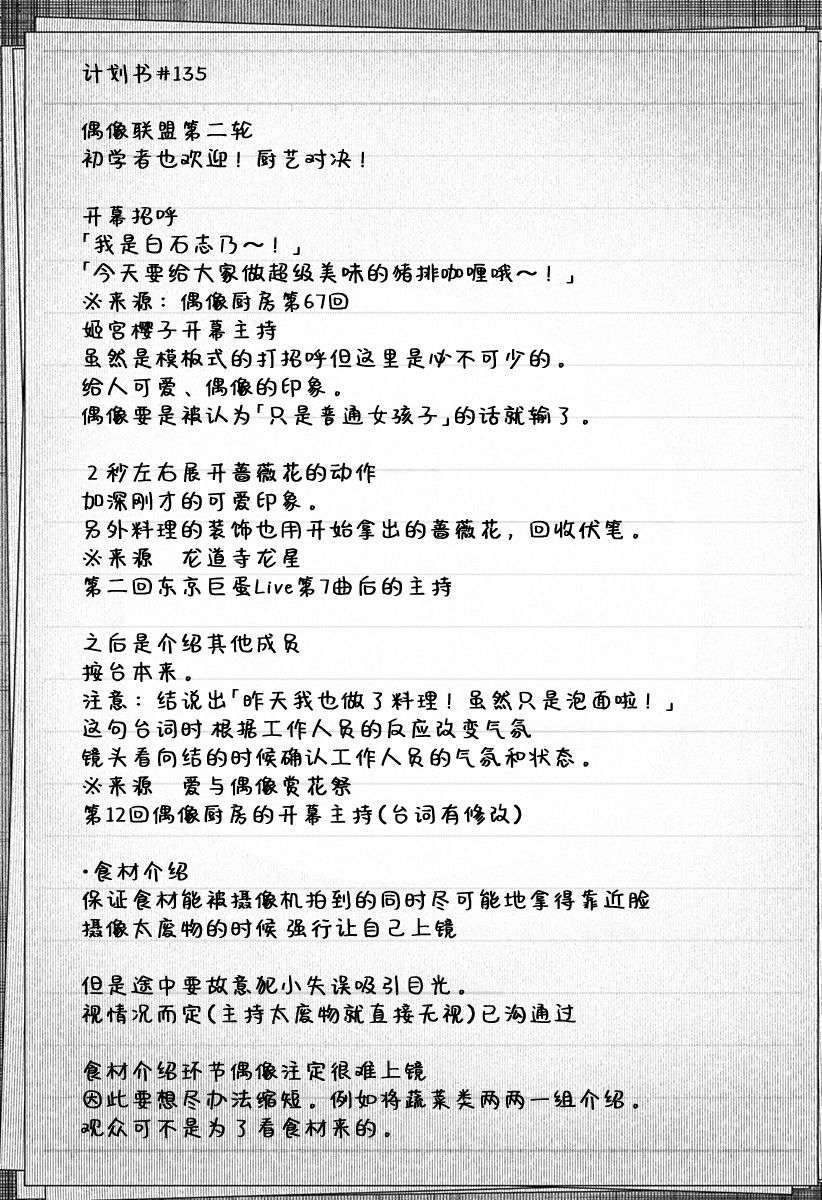 计划书#135
偶像联盟第二轮
初学者也欢迎！厨艺对决！
开幕招呼
「我是白石志乃～！」
「今天要给大家做超级美味的猪排咖喱哦～！」
※来源：偶像厨房第67回
姬宫樱子开幕主持
虽然是模板式的打招呼但这里是必不可少的。
给人可爱、偶像的印象。
偶像要是被认为「只是普通女孩子」的话就输了。
2秒左右展开蔷薇花的动作
加深刚才的可爱印象。
另外料理的装饰也用开始拿出的蔷薇花，回收伏笔。
※来源　龙道寺龙星
第二回东京巨蛋Live第7曲后的主持
之后是介绍其他成员
按台本来。
注意：结说出「昨天我也做了料理！虽然只是泡面啦！」
这句台词时 根据工作人员的反应改变气氛
镜头看向结的时候确认工作人员的气氛和状态。
※来源　爱与偶像赏花祭
第12回偶像厨房的开幕主持(台词有修改)
·食材介绍
保证食材能被摄像机拍到的同时尽可能地拿得靠近脸
摄像太废物的时候 强行让自己上镜
但是途中要故意犯小失误吸引目光。
视情况而定(主持太废物就直接无视)已沟通过
食材介绍环节偶像注定很难上镜
因此要想尽办法缩短。例如将蔬菜类两两一组介绍。
观众可不是为了看食材来的。